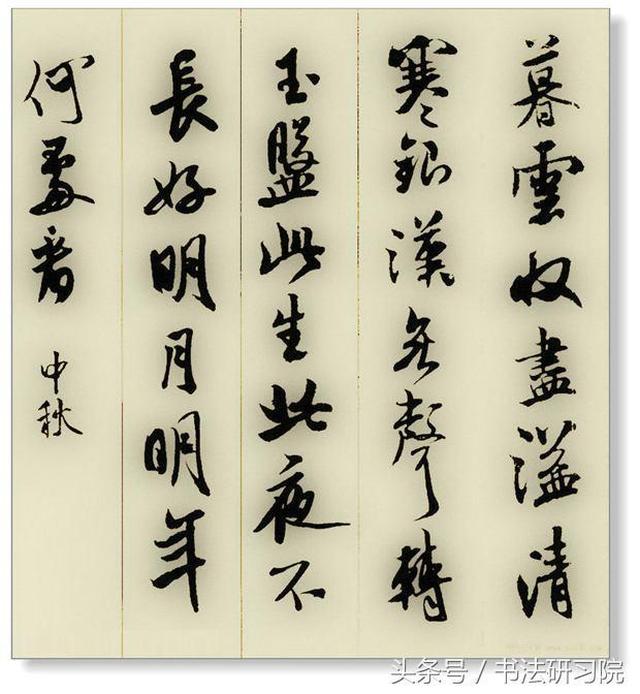 暮雲收盡溢清
寒銀漢無聲轉
玉盤此生此夜不
長好明月明年
何處看
中秋
头条号 / 书法研习院